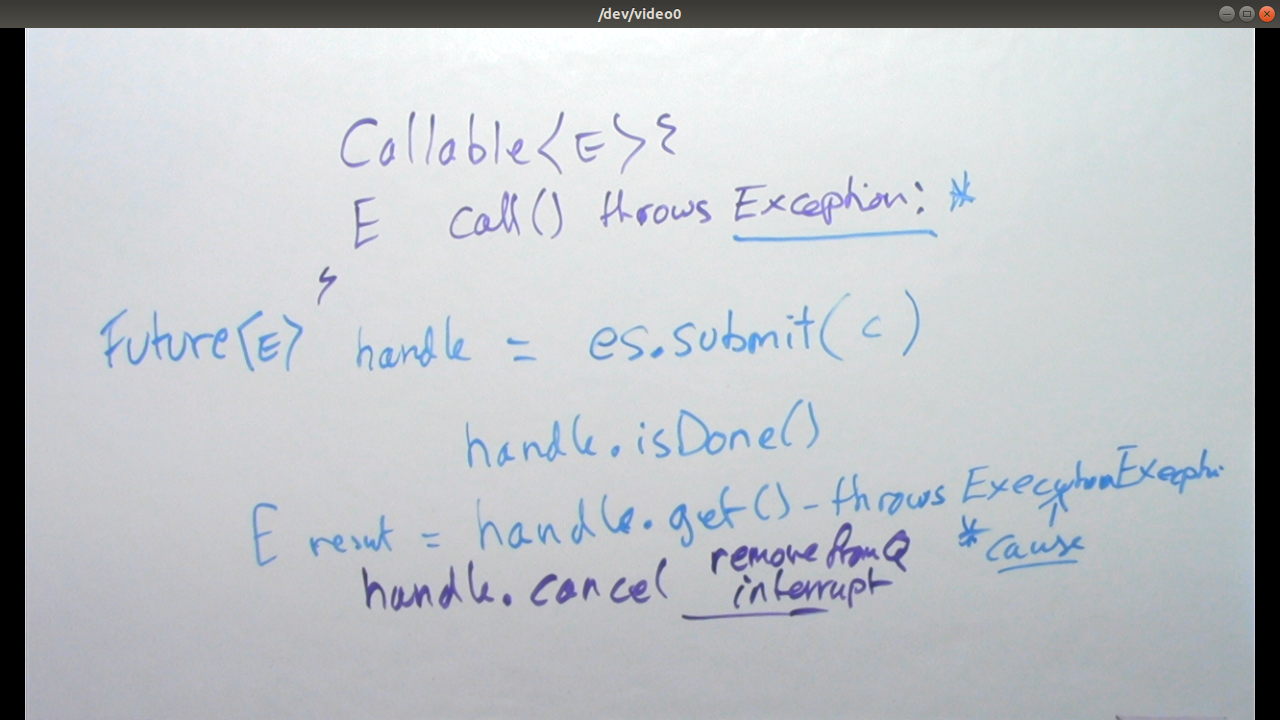 /dev/video0
Callable<E>{
E call() throws Exception; *
}
Future<E> handle = es.submit(c)
handle.isDone()
E result = handle.get() - throws ExecutionExceptio
* cause
remove from Q
handle.cancel interrupt